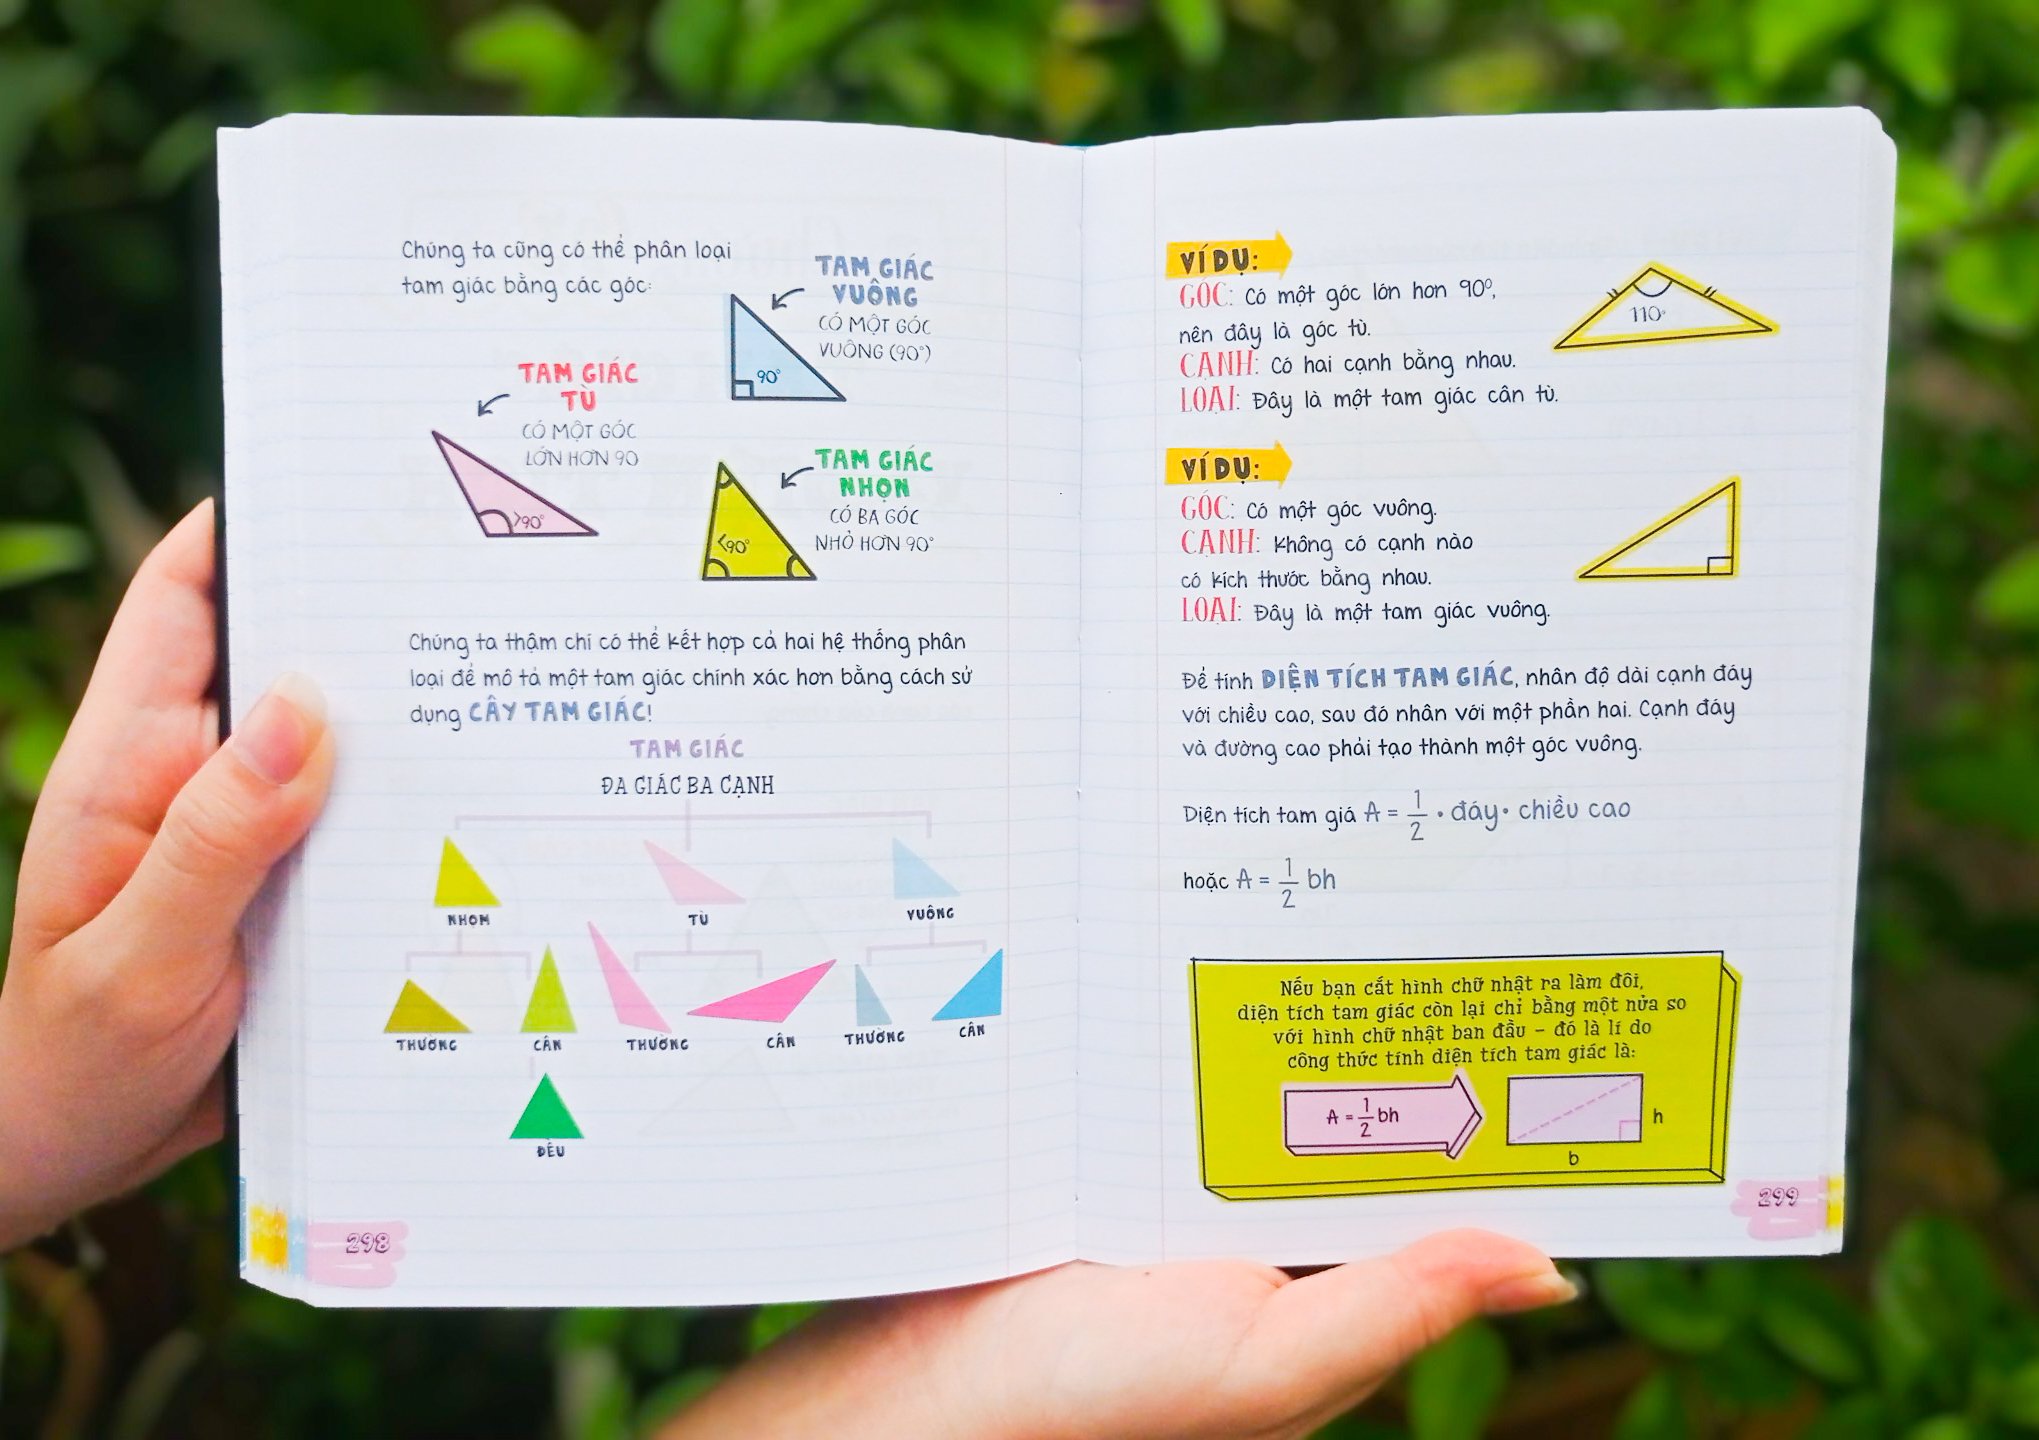 Chúng ta cũng có thể phân loại
tam giác bằng các góc:
TAM GIÁC
VUÔNG
CÓ MỘT GÓC
VUÔNG (90°)
90°
TAM GIÁC
TÙ
CÓ MỘT GÓC
LỚN HƠN 90
>90°
TAM GIÁC
NHỌN
CÓ BA GÓC
NHỎ HƠN 90°
<90°
Chúng ta thậm chí có thể kết hợp cả hai hệ thống phân
loại để mô tả một tam giác chính xác hơn bằng cách sử
dụng CÂY TAM GIÁC!
TAM GIÁC
ĐA GIÁC BA CẠNH
NHỌN
TÙ
VUÔNG
THƯỜNG
CÂN
THƯỜNG
CÂN
THƯỜNG
CÂN
ĐỀU
298
VÍ DỤ:
GÓC: Có một góc lớn hơn 90°,
nên đây là góc tù.
CẠNH: Có hai cạnh bằng nhau.
LOẠI: Đây là một tam giác cân tù.
110°
VÍ DỤ:
GÓC: Có một góc vuông.
CẠNH: Không có cạnh nào
có kích thước bằng nhau.
LOẠI: Đây là một tam giác vuông.
Để tính DIỆN TÍCH TAM GIÁC, nhân độ dài cạnh đáy
với chiều cao, sau đó nhân với một phần hai. Cạnh đáy
và đường cao phải tạo thành một góc vuông.
Diện tích tam giá A = 1/2 • đáy • chiều cao
hoặc A = 1/2 bh
Nếu bạn cắt hình chữ nhật ra làm đôi,
diện tích tam giác còn lại chỉ bằng một nửa so
với hình chữ nhật ban đầu – đó là lí do
công thức tính diện tích tam giác là:
A = 1/2 bh
h
b
299